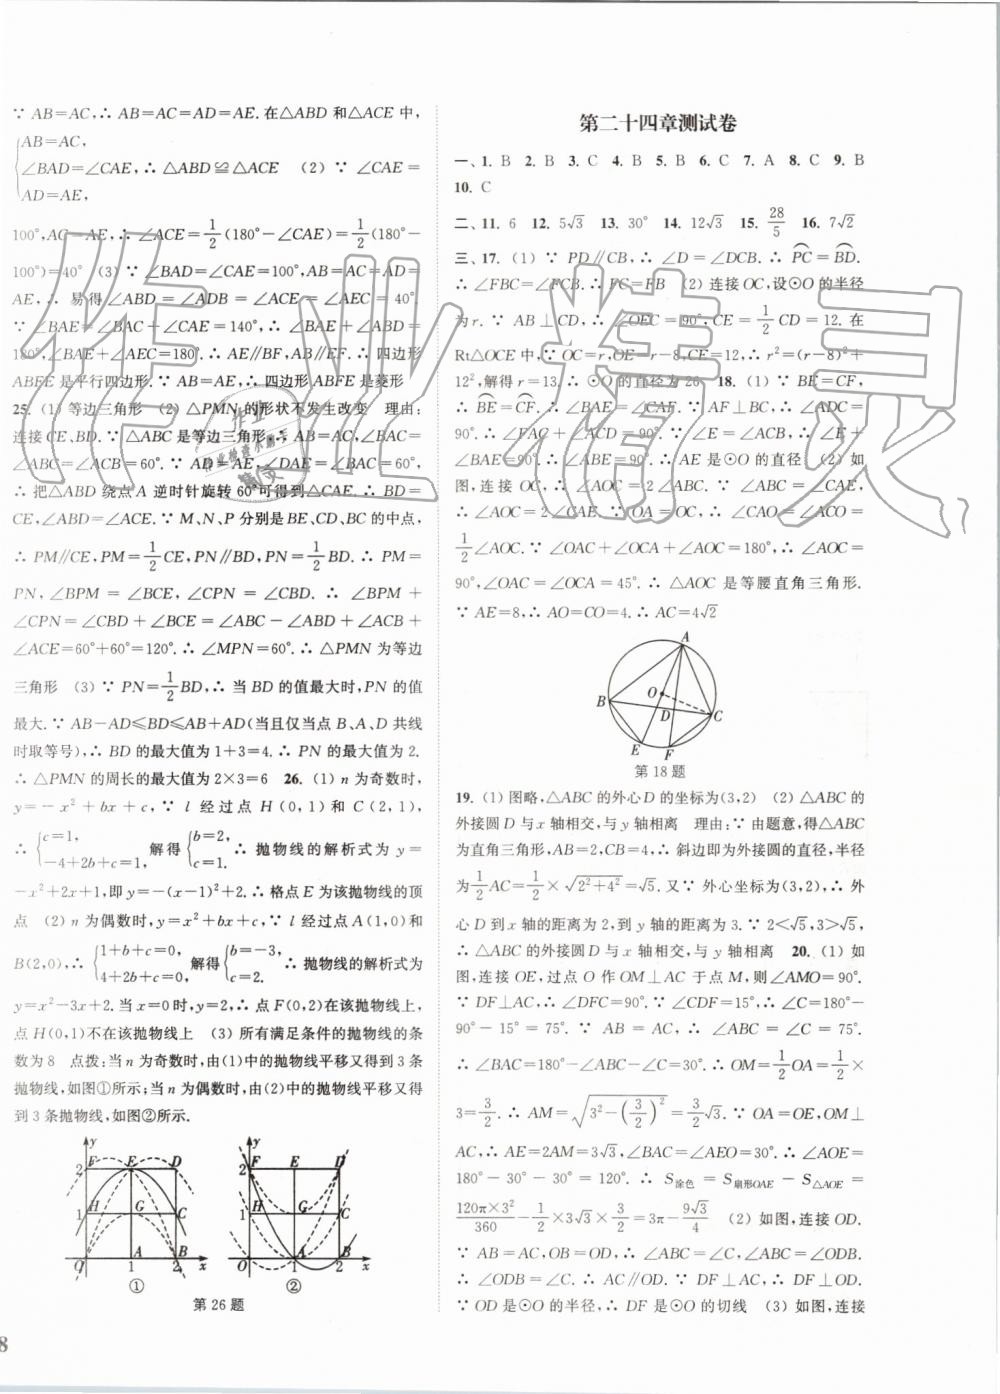 ∵ AB=AC,∴ AB=AC=AD=AE.在△ABD 和△ACE 中,
AB=AC,
∠BAD=∠CAE,∴ △ABD≌△ACE (2) ∵ ∠CAE=
AD=AE,
100°,AC=AE,∴ ∠ACE=1/2(180°-∠CAE)=1/2(180°-
100°)=40° (3) ∵ ∠BAD=∠CAE=100°,AB=AC=AD=
AE,∴ 易得∠ABD=∠ADB=∠ACE=∠AEC=40°.
∵ ∠BAE=∠BAC+∠CAE=140°,∴ ∠BAE+∠ABD=
180°,∠BAE+∠AEC=180°.∴ AE∥BF,AB∥EF.∴ 四边形
ABFE是平行四边形.∵ AB=AE,∴ 四边形ABFE是菱形
25. (1) 等边三角形 (2) △PMN的形状不发生改变 理由:
连接CE、BD.∵ △ABC是等边三角形,∴ AB=AC,∠BAC=
∠ABC=∠ACB=60°.∵ AD=AE,∠DAE=∠BAC=60°,
∴ 把△ABD绕点A逆时针旋转60°可得到△CAE.∴ BD=
CE,∠ABD=∠ACE.∵ M、N、P分别是BE、CD、BC的中点,
∴ PM∥CE,PM=1/2CE,PN∥BD,PN=1/2BD.∴ PM=
PN,∠BPM=∠BCE,∠CPN=∠CBD.∴ ∠BPM+
∠CPN=∠CBD+∠BCE=∠ABC-∠ABD+∠ACB+
∠ACE=60°+60°=120°.∴ ∠MPN=60°.∴ △PMN为等边
三角形 (3) ∵ PN=1/2BD,∴ 当BD的值最大时,PN的值
最大.∵ AB-AD≤BD≤AB+AD(当且仅当点B、A、D共线
时取等号),∴ BD的最大值为1+3=4.∴ PN的最大值为2.
∴ △PMN的周长的最大值为2×3=6 26. (1) n为奇数时,
y=-x²+bx+c,∵ l经过点H(0,1)和C(2,1),
∴ {c=1, -4+2b+c=1, 解得 {b=2, c=1. ∴ 抛物线的解析式为y=
-x²+2x+1,即y=-(x-1)²+2.∴ 格点E为该抛物线的顶
点 (2) n为偶数时,y=x²+bx+c,∵ l经过点A(1,0)和
B(2,0),∴ {1+b+c=0, 4+2b+c=0, 解得 {b=-3, c=2. ∴ 抛物线的解析式为
y=x²-3x+2.当x=0时,y=2,∴ 点F(0,2)在该抛物线上,
点H(0,1)不在该抛物线上 (3) 所有满足条件的抛物线的条
数为8 点拨:当n为奇数时,由(1)中的抛物线平移又得到3条
抛物线,如图①所示;当n为偶数时,由(2)中的抛物线平移又得
到3条抛物线,如图②所示.
y
2 F E D
1 H G C
O A 1 B 2 x
①
y
2 F E D
1 H G C
O A 1 B 2 x
②
第26题
8
第二十四章测试卷
一、1. B 2. B 3. C 4. B 5. B 6. C 7. A 8. C 9. B
10. C
二、11. 6 12. 5√3 13. 30° 14. 12√3 15. 28/5 16. 7√2
三、17. (1) ∵ PD∥CB,∴ ∠D=∠DCB.∴ PC=BD.
∴ ∠FBC=∠FCB.∴ FC=FB (2) 连接OC,设⊙O的半径
为r.∵ AB⊥CD,∴ ∠OEC=90°,CE=1/2CD=12.在
Rt△OCE中,∵ OC=r,OE=r-8,CE=12,∴ r²=(r-8)²+
12²,解得r=13.∴ ⊙O的直径为26 18. (1) ∵ BE=CF,
∴ BE=CF.∴ ∠BAE=∠CAF.∵ AF⊥BC,∴ ∠ADC=
90°.∴ ∠FAC+∠ACD=90°.∵ ∠E=∠ACB,∴ ∠E+
∠BAE=90°.∴ ∠ABE=90°.∴ AE是⊙O的直径 (2) 如
图,连接OC,∴ ∠AOC=2∠ABC.∵ ∠ABC=∠CAE,
∴ ∠AOC=2∠CAE.∵ OA=OC,∴ ∠CAO=∠ACO=
1/2∠AOC.∵ ∠OAC+∠OCA+∠AOC=180°,∴ ∠AOC=
90°,∠OAC=∠OCA=45°.∴ △AOC是等腰直角三角形.
∵ AE=8,∴ AO=CO=4.∴ AC=4√2
A
O
B D C
E F
第18题
19. (1) 图略,△ABC的外心D的坐标为(3,2) (2) △ABC的
外接圆D与x轴相交,与y轴相离 理由:∵ 由题意,得△ABC
为直角三角形,AB=2,CB=4,∴ 斜边即为外接圆的直径,半径
为1/2AC=1/2×√(2²+4²)=√5.又∵ 外心坐标为(3,2),∴ 外
心D到x轴的距离为2,到y轴的距离为3.∵ 2<√5,3>√5,
∴ △ABC的外接圆D与x轴相交,与y轴相离 20. (1) 如
图,连接OE,过点O作OM⊥AC于点M,则∠AMO=90°.
∵ DF⊥AC,∴ ∠DFC=90°.∵ ∠CDF=15°,∴ ∠C=180°-
90°-15°=75°.∵ AB=AC,∴ ∠ABC=∠C=75°.
∴ ∠BAC=180°-∠ABC-∠C=30°.∴ OM=1/2OA=1/2×
3=3/2.∴ AM=√(3²-(3/2)²)=3/2√3.∵ OA=OE,OM⊥
AC,∴ AE=2AM=3√3,∠BAC=∠AEO=30°.∴ ∠AOE=
180°-30°-30°=120°.∴ S涂色=S扇形OAE-S△AOE=
120π×3²/360-1/2×3√3×3/2=3π-9√3/4 (2) 如图,连接OD.
∵ AB=AC,OB=OD,∴ ∠ABC=∠C,∠ABC=∠ODB.
∴ ∠ODB=∠C.∴ AC∥OD.∵ DF⊥AC,∴ DF⊥OD.
∵ OD是⊙O的半径,∴ DF是⊙O的切线 (3) 如图,连接
作业精灵